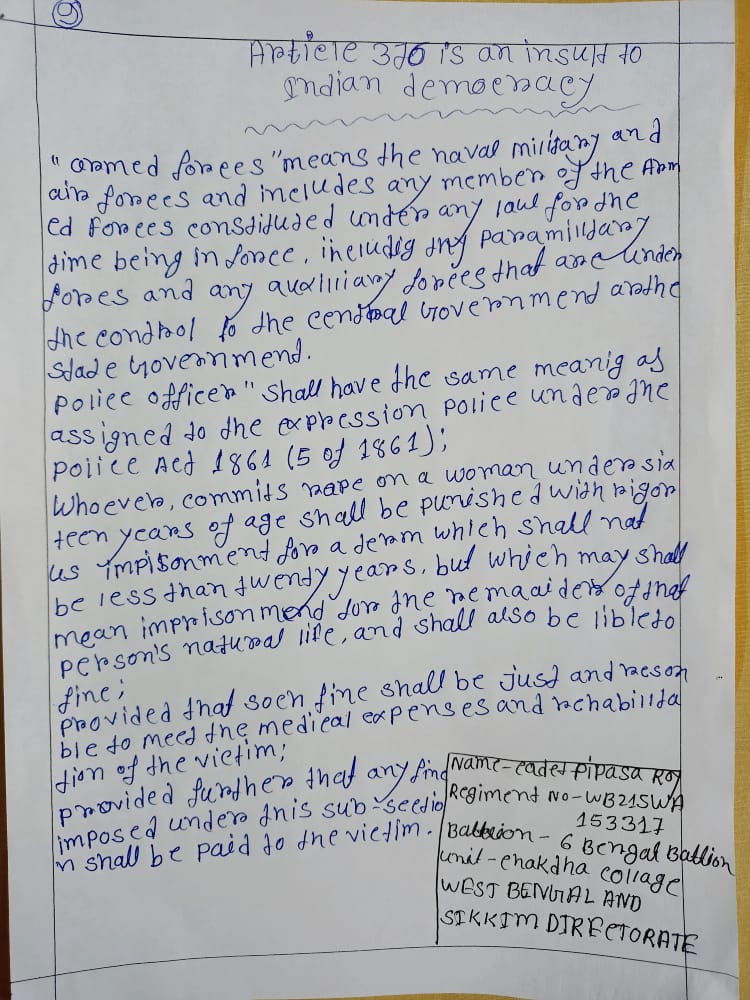 9
Article 376 is an insult to
Indian democracy
"armed forces" means the naval military and
air forces and includes any member of the Arm
ed Forces constituted under any law for the
time being in force, includig any paramilitary
forces and any auxiliary forces that are under
the control fo the central Government or the
State Government.
Police officer" shall have the same meanig as
assigned to the expression police under the
Police Act 1861 (5 of 1861);
Whoever, commits rape on a woman under six
teen years of age shall be punished with rigor
us impisonment for a term which shall not
be less than twenty years, but which may shall
mean imprisonment for the remaaider of that
person's natural life, and shall also be lible to
fine;
provided that soch fine shall be just and reson
ble to meet the medical expenses and rehabilita
tion of the victim;
provided further that any find
imposed under this sub-sectio
n shall be paid to the victim.
Name-cadet Pipasa Roy
Regiment No-WB21SWA
153317
Battelion - 6 Bengal Batlion
unit-chakdha collage
WEST BENGAL AND
SIKKIM DIRECTORATE